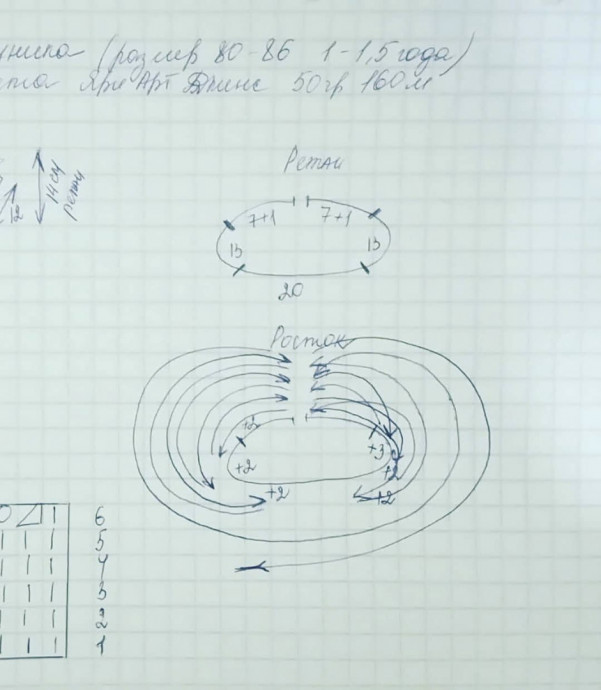 (размер 80-86 1-1,5 года)
ЯрнАрт Джинс 50гр 160м
14см
реглан
12
Реглан
7+1 7+1
13 13
20
Росток
+2 +3
+2 +2
+2 +2
6
5
4
3
2
1